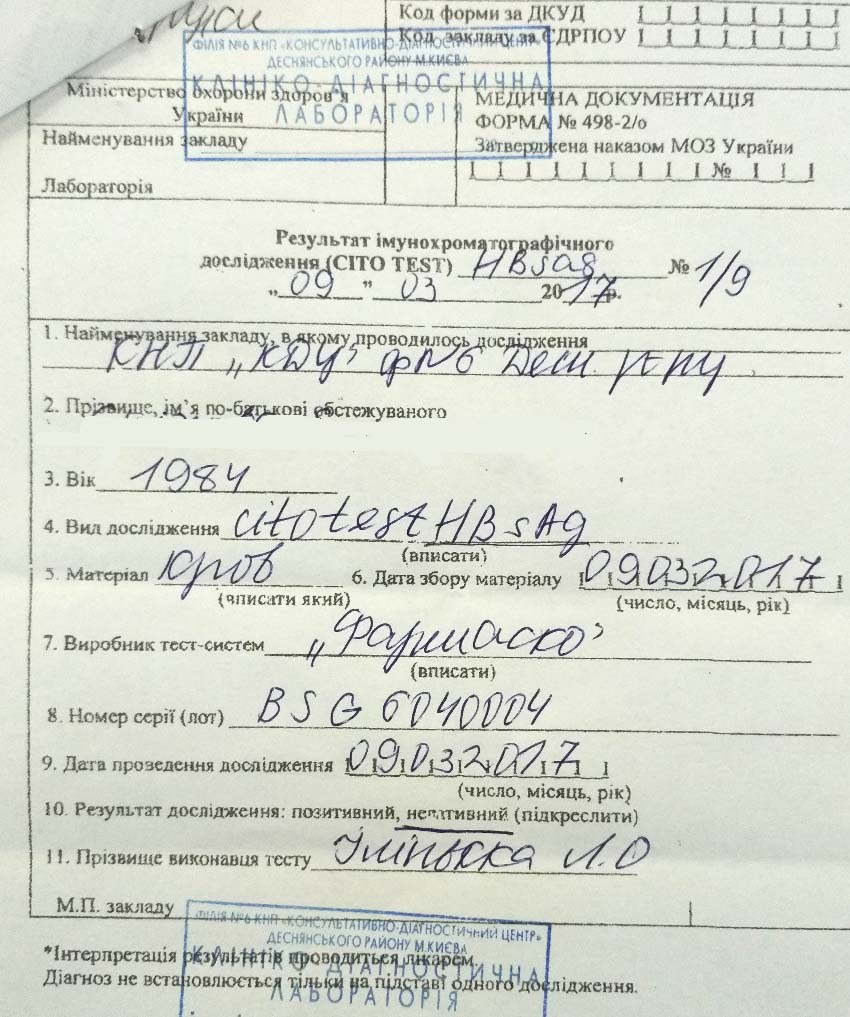 Код форми за ДКУД
Код закладу за ЄДРПОУ
ФІЛІЯ №6 КНП «КОНСУЛЬТАТИВНО-ДІАГНОСТИЧНИЙ ЦЕНТР»
ДЕСНЯНСЬКОГО РАЙОНУ М.КИЄВА
КЛІНІКО ДІАГНОСТИЧНА
ЛАБОРАТОРІЯ
Міністерство охорони здоров'я
України
Найменування закладу
Лабораторія
МЕДИЧНА ДОКУМЕНТАЦІЯ
ФОРМА № 498-2/о
Затверджена наказом МОЗ України
№
Результат імунохроматографічного
дослідження (CITO TEST) HBsag № 1/9
„09” 03 2017р.
1. Найменування закладу, в якому проводилось дослідження
КНП „КДЦ” ф№6 Десн р-ну
2. Прізвище, ім'я по-батькові обстежуваного
3. Вік 1984
4. Вид дослідження citotest HBsAg
(вписати)
5. Матеріал кров 6. Дата збору матеріалу 09032017
(вписати який) (число, місяць, рік)
7. Виробник тест-систем „Фармаско”
(вписати)
8. Номер серії (лот) BSG 6040004
9. Дата проведення дослідження 09032017
(число, місяць, рік)
10. Результат дослідження: позитивний, негативний (підкреслити)
11. Прізвище виконавця тесту Л.О
М.П. закладу
ФІЛІЯ №6 КНП «КОНСУЛЬТАТИВНО-ДІАГНОСТИЧНИЙ ЦЕНТР»
ДЕСНЯНСЬКОГО РАЙОНУ М.КИЄВА
КЛІНІКО ДІАГНОСТИЧНА
ЛАБОРАТОРІЯ
*Інтерпретація результатів проводиться лікарем.
Діагноз не встановлюється тільки на підставі одного дослідження.